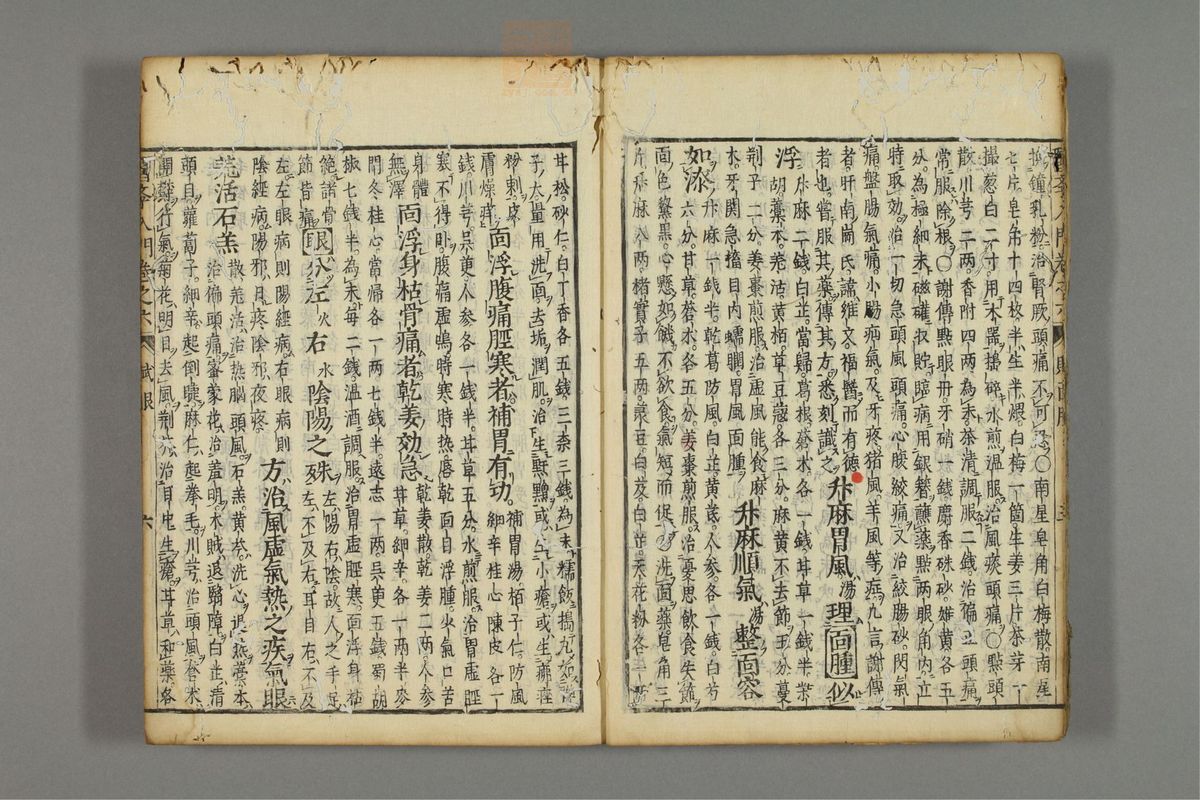 撮葱白二寸用木器搗碎水煎溫服治風痰頭痛〇點頭
散川芎二兩香附四兩為末茶清調服二錢治偏正頭痛
常服除根〇謝傳點眼丹牙硝一錢麝香硃砂雄黃各五
分為極細末磁確收貯臨病用銀簪蘸藥點兩眼角內立
特取效治一切急頭風頭痛心腹絞痛又治絞腸砂閃氣
痛盤腸氣痛小腸疝氣及牙疼猪風羊風等症九言謝傳
者肝南崗氏諱維文福醫而有德
者也嘗服其藥傳其方悉刻識之升麻胃風湯理面腫似
浮升麻二錢白芷當歸葛根蒼朮各一錢甘草一錢半柴
胡藁本羌活黃栢草豆蔻各三分麻黃不去節五分蔓
荊子二分姜棗煎服治虛風能食麻
木牙關急搐目內蠕瞤胃風面腫升麻順氣湯整面容
如漆升麻一錢半乾葛防風白芷黃芪人參各一錢白芍
六分甘草蒼朮各五分姜棗煎服治憂思飲食失節
面色黧黑心懸如餓不欲食氣短而促〇洗面藥皂角三
斤升麻八兩楮實子五兩菉豆白芨白芷天花粉各一兩
甘松砂仁白丁香各五錢三柰三錢為末糯飯搗丸如彈
子大量用洗面去垢潤肌治生䵟䵳或生小瘡或生痱痤
粉刺皮
膚燥痒面浮腹痛脛寒者補胃有功補胃湯栢子仁防風
細辛桂心陳皮各一
錢川芎吳茰人參各一錢甘草五分水煎服治胃虛脛
寒不得卧腹痛虛鳴時寒時熱唇乾面目浮腫少氣口苦
身體
無澤面浮身枯骨痛者乾姜効急乾姜散乾姜二兩人參
甘草細辛各一兩半麥
門冬桂心當歸各一兩七錢半遠志一兩吳茰五錢蜀胡
椒七錢半為末每二錢溫酒調服治胃虛脛寒面浮身枯
絕諸骨
節皆痛眼分左火右水陰陽之殊左陽右陰故人之手足
左不及右耳目右不及
左左眼病則陽經病右眼病則
陰經病陽邪日疼陰邪夜疼方治風虛氣熱之疾氣眼
羌活石羔散羌活治熱腦頭風石羔黃芩洗心退熱藁本
治偏頭痛密蒙花治羞明木賊退翳障白芷清
頭目蘿蔔子細辛起倒睫麻仁起拳毛川芎治頭風蒼朮
開鬱行氣菊花明目去風荊芥治目中生瘡甘草和藥各
醫學入門卷之六
試眼
六